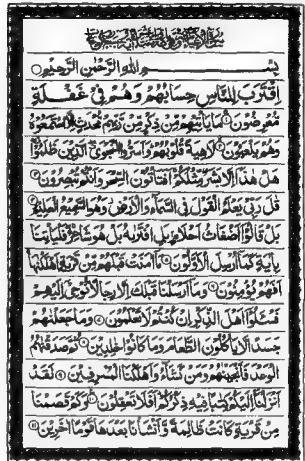 بِسْمِ اللهِ الرَّحْمٰنِ الرَّحِيْمِ
اِقْتَرَبَ لِلنَّاسِ حِسَابُهُمْ وَهُمْ فِيْ غَفْلَةٍ
مُّعْرِضُوْنَ ۝ مَا يَأْتِيْهِمْ مِّنْ ذِكْرٍ مِّنْ رَّبِّهِمْ مُّحْدَثٍ اِلَّا اسْتَمَعُوْهُ
وَهُمْ يَلْعَبُوْنَ ۝ لَاهِيَةً قُلُوْبُهُمْ وَاَسَرُّوا النَّجْوَى الَّذِيْنَ ظَلَمُوْا
هَلْ هٰذَا اِلَّا بَشَرٌ مِّثْلُكُمْ اَفَتَأْتُوْنَ السِّحْرَ وَاَنْتُمْ تُبْصِرُوْنَ ۝
قٰلَ رَبِّيْ يَعْلَمُ الْقَوْلَ فِي السَّمَآءِ وَالْاَرْضِ وَهُوَ السَّمِيْعُ الْعَلِيْمُ ۝
بَلْ قَالُوْٓا اَضْغَاثُ اَحْلَامٍ بَلِ افْتَرٰىهُ بَلْ هُوَ شَاعِرٌ فَلْيَأْتِنَا
بِاٰيَةٍ كَمَآ اُرْسِلَ الْاَوَّلُوْنَ ۝ مَآ اٰمَنَتْ قَبْلَهُمْ مِّنْ قَرْيَةٍ اَهْلَكْنٰهَا
اَفَهُمْ يُؤْمِنُوْنَ ۝ وَمَآ اَرْسَلْنَا قَبْلَكَ اِلَّا رِجَالًا نُّوْحِيْٓ اِلَيْهِمْ
فَسْـَٔلُوْٓا اَهْلَ الذِّكْرِ اِنْ كُنْتُمْ لَا تَعْلَمُوْنَ ۝ وَمَا جَعَلْنٰهُمْ
جَسَدًا لَّا يَأْكُلُوْنَ الطَّعَامَ وَمَا كَانُوْا خٰلِدِيْنَ ۝ ثُمَّ صَدَقْنٰهُمُ
الْوَعْدَ فَاَنْجَيْنٰهُمْ وَمَنْ نَّشَآءُ وَاَهْلَكْنَا الْمُسْرِفِيْنَ ۝ لَقَدْ
اَنْزَلْنَآ اِلَيْكُمْ كِتٰبًا فِيْهِ ذِكْرُكُمْ اَفَلَا تَعْقِلُوْنَ ۝ وَكَمْ قَصَمْنَا
مِنْ قَرْيَةٍ كَانَتْ ظَالِمَةً وَّاَنْشَأْنَا بَعْدَهَا قَوْمًا اٰخَرِيْنَ ۝